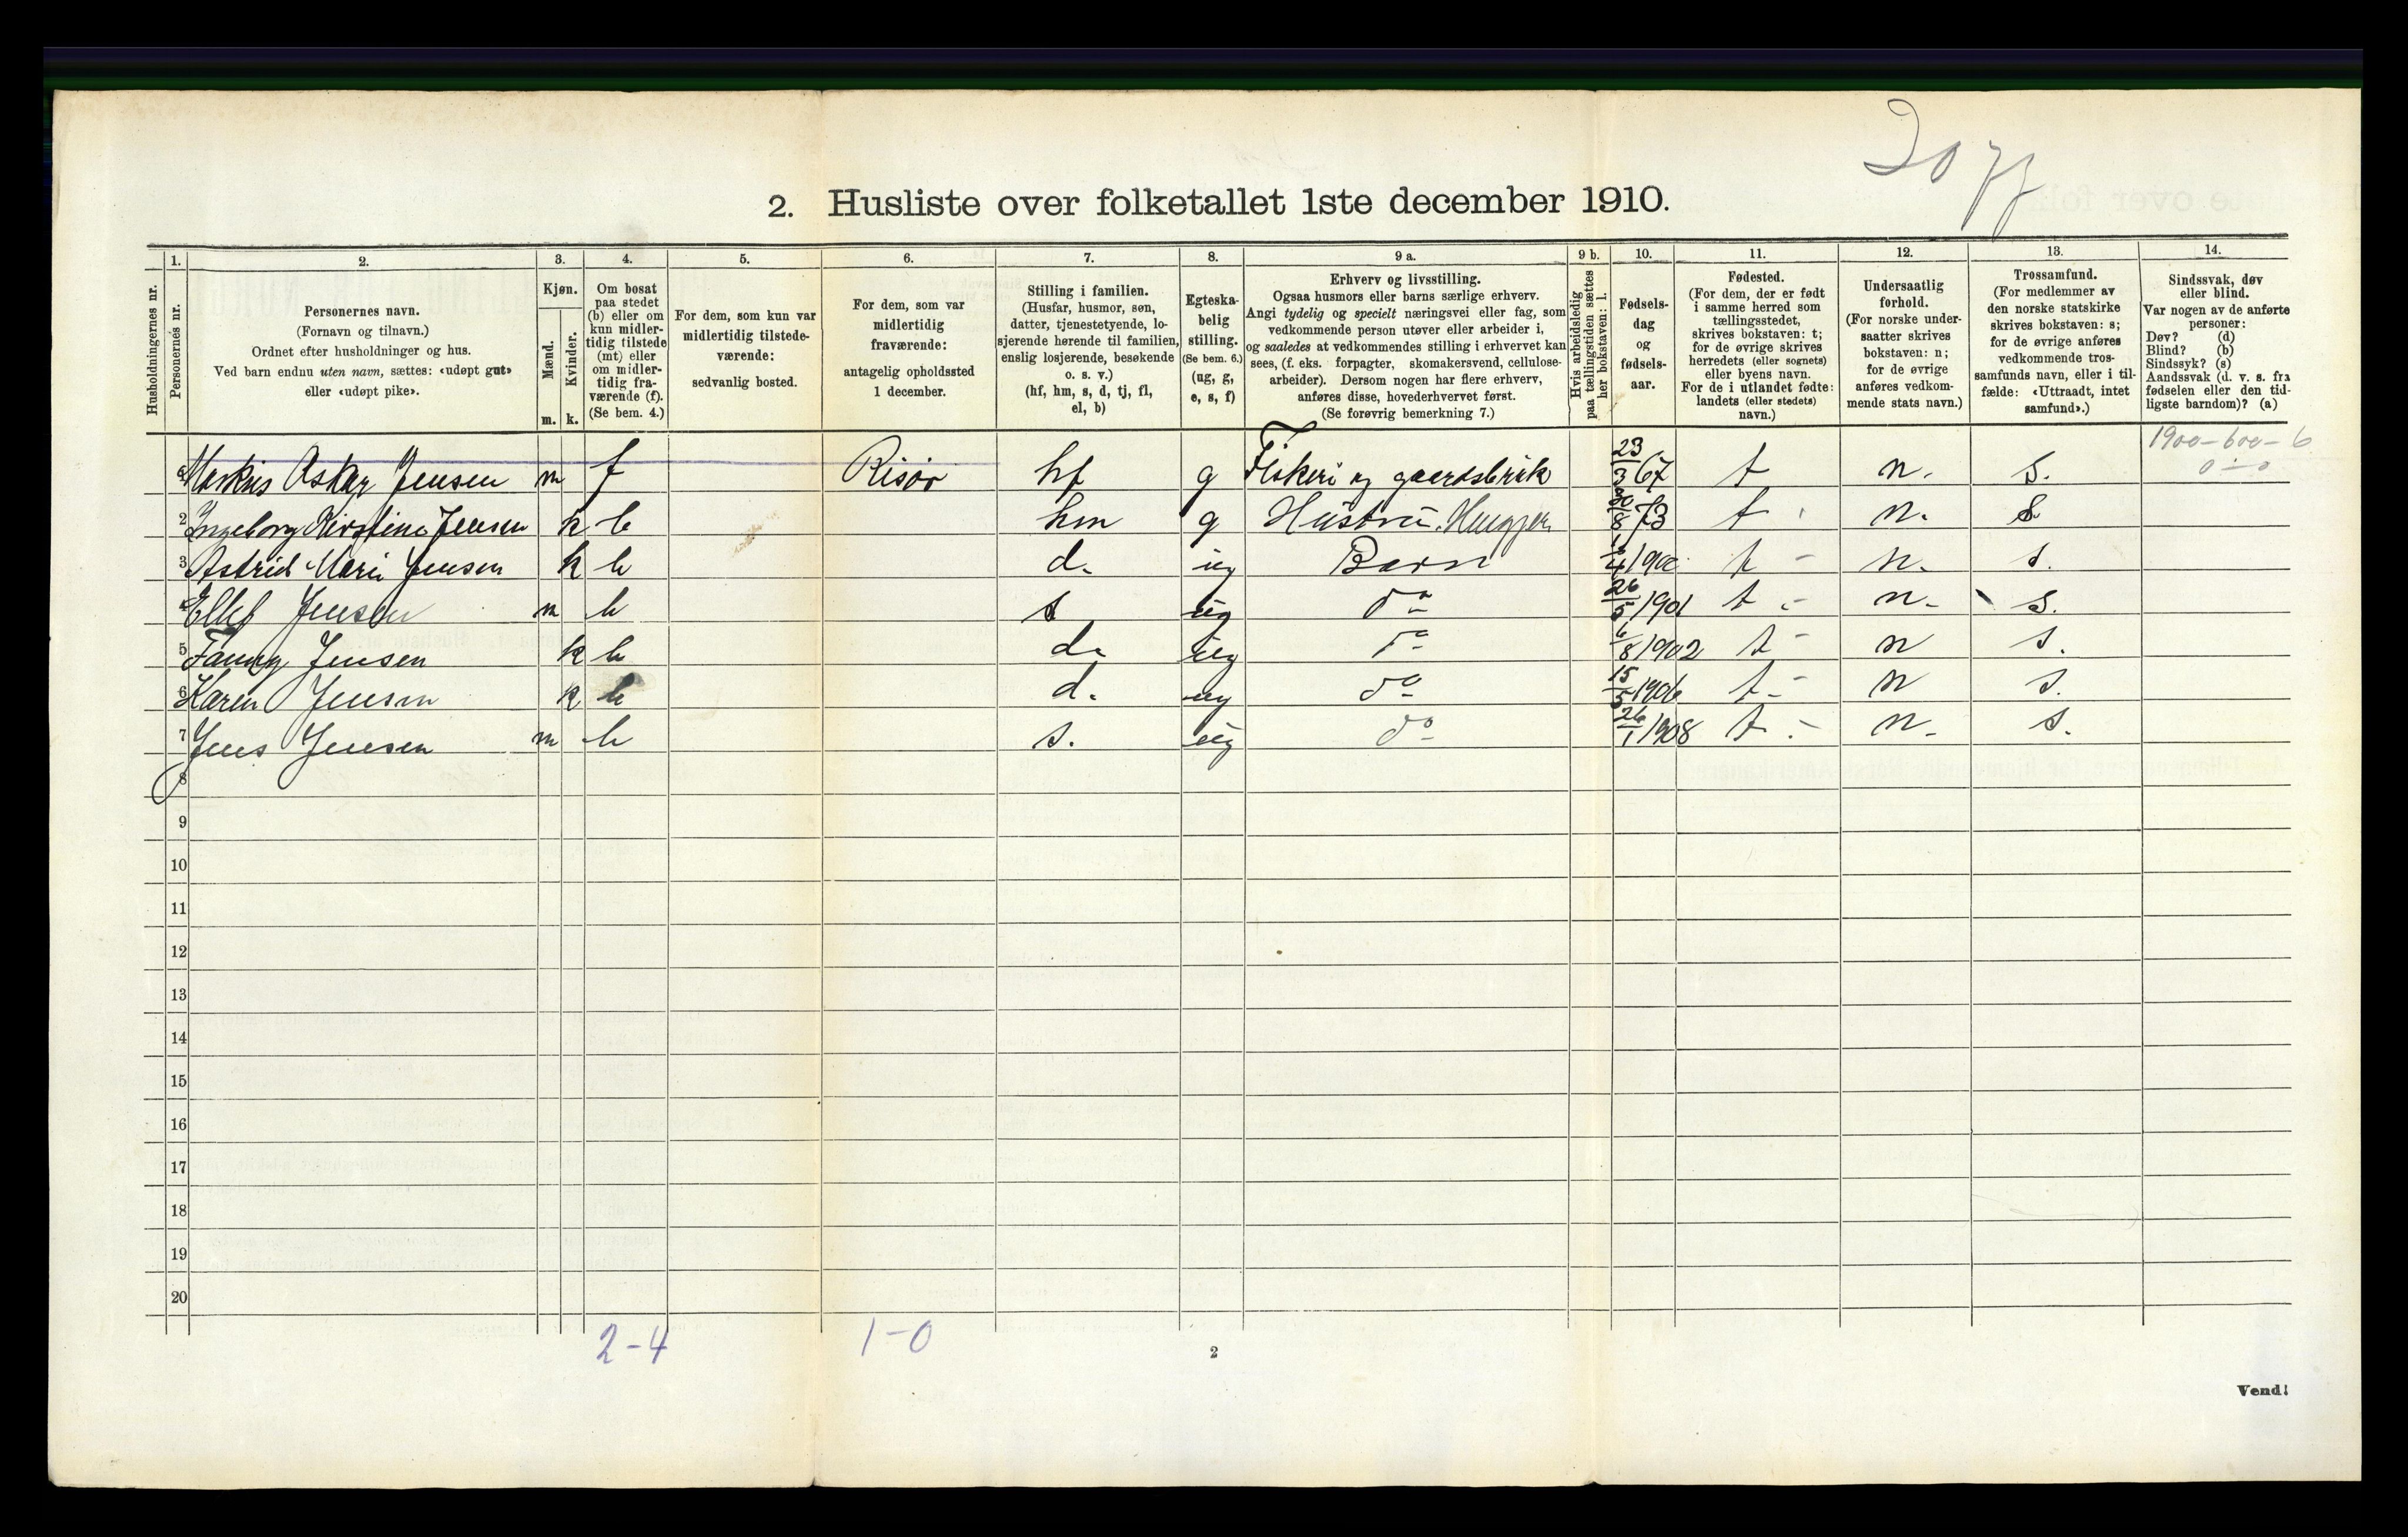 2. Husliste over folketallet 1ste december 1910.
Husholdningernes nr.
1. Personernes nr.
2. Personernes navn.
(Fornavn og tilnavn.)
Ordnet efter husholdninger og hus.
Ved barn endnu uten navn, sættes: «udøpt gut»
eller «udøpt pike».
3. Kjøn.
Mænd. Kvinder.
m. k.
4. Om bosat
paa stedet
(b) eller om
kun midler-
tidig tilstede
(mt) eller
om midler-
tidig fra-
værende (f).
(Se bem. 4.)
5. For dem, som kun var
midlertidig tilstede-
værende:
sedvanlig bosted.
6. For dem, som var
midlertidig
fraværende:
antagelig opholdssted
1 december.
7. Stilling i familien.
(Husfar, husmor, søn,
datter, tjenestetyende, lo-
sjerende hørende til familien,
enslig losjerende, besøkende
o. s. v.)
(hf, hm, s, d, tj, fl,
el, b)
8. Egteska-
belig
stilling.
(Se bem. 6.)
(ug, g,
e, s, f)
9 a. Erhverv og livsstilling.
Ogsaa husmors eller barns særlige erhverv.
Angi tydelig og specielt næringsvei eller fag, som
vedkommende person utøver eller arbeider i,
og saaledes at vedkommendes stilling i erhvervet kan
sees, (f. eks. forpagter, skomakersvend, cellulose-
arbeider). Dersom nogen har flere erhverv,
anføres disse, hovederhvervet først.
(Se forøvrig bemerkning 7.)
9 b. Hvis arbeidsledig
paa tællingstiden sættes
her bokstaven: l.
10. Fødsels-
dag
og
fødsels-
aar.
11. Fødested.
(For dem, der er født
i samme herred som
tællingsstedet,
skrives bokstaven: t;
for de øvrige skrives
herredets (eller sognets)
eller byens navn.
For de i utlandet fødte:
landets (eller stedets)
navn.)
12. Undersaatlig
førhold.
(For norske under-
saatter skrives
bokstaven: n;
for de øvrige
anføres vedkom-
mende stats navn.)
13. Trossamfund.
(For medlemmer av
den norske statskirke
skrives bokstaven: s;
for de øvrige anføres
vedkommende tros-
samfunds navn, eller i til-
fælde: «Uttraadt, intet
samfund».)
14. Sindssvak, døv
eller blind.
Var nogen av de anførte
personer:
Døv? (d)
Blind? (b)
Sindssyk? (s)
Aandssvak (d. v. s. fra
fødselen eller den tid-
ligste barndom)? (a)
1900-600-6
0-0
Markus Oskar Jensen m f Risør hf g Fiskeri og gaardsbruk 23/3 67 t n. s.
2 Ingeborg Kirstine Jensen k b hm g Hustru 30/8 73 t n. s
3 Astrid Marie Jensen k b d. ug Barn 1900 t - n. s.
4 Ellef Jensen m b s ug do 26/5 1901 t - n - s.
5 Fanny Jensen k b d. ug do 6/8 1902 t - n s.
6 Karen Jensen k b d. ug do 15/5 1906 t - n s.
7 Jens Jensen m b s. ug do 26/1 1908 t - n. s.
8
9
10
11
12
13
14
15
16
17
18
19
20
2-4 1-0
2
Vend!